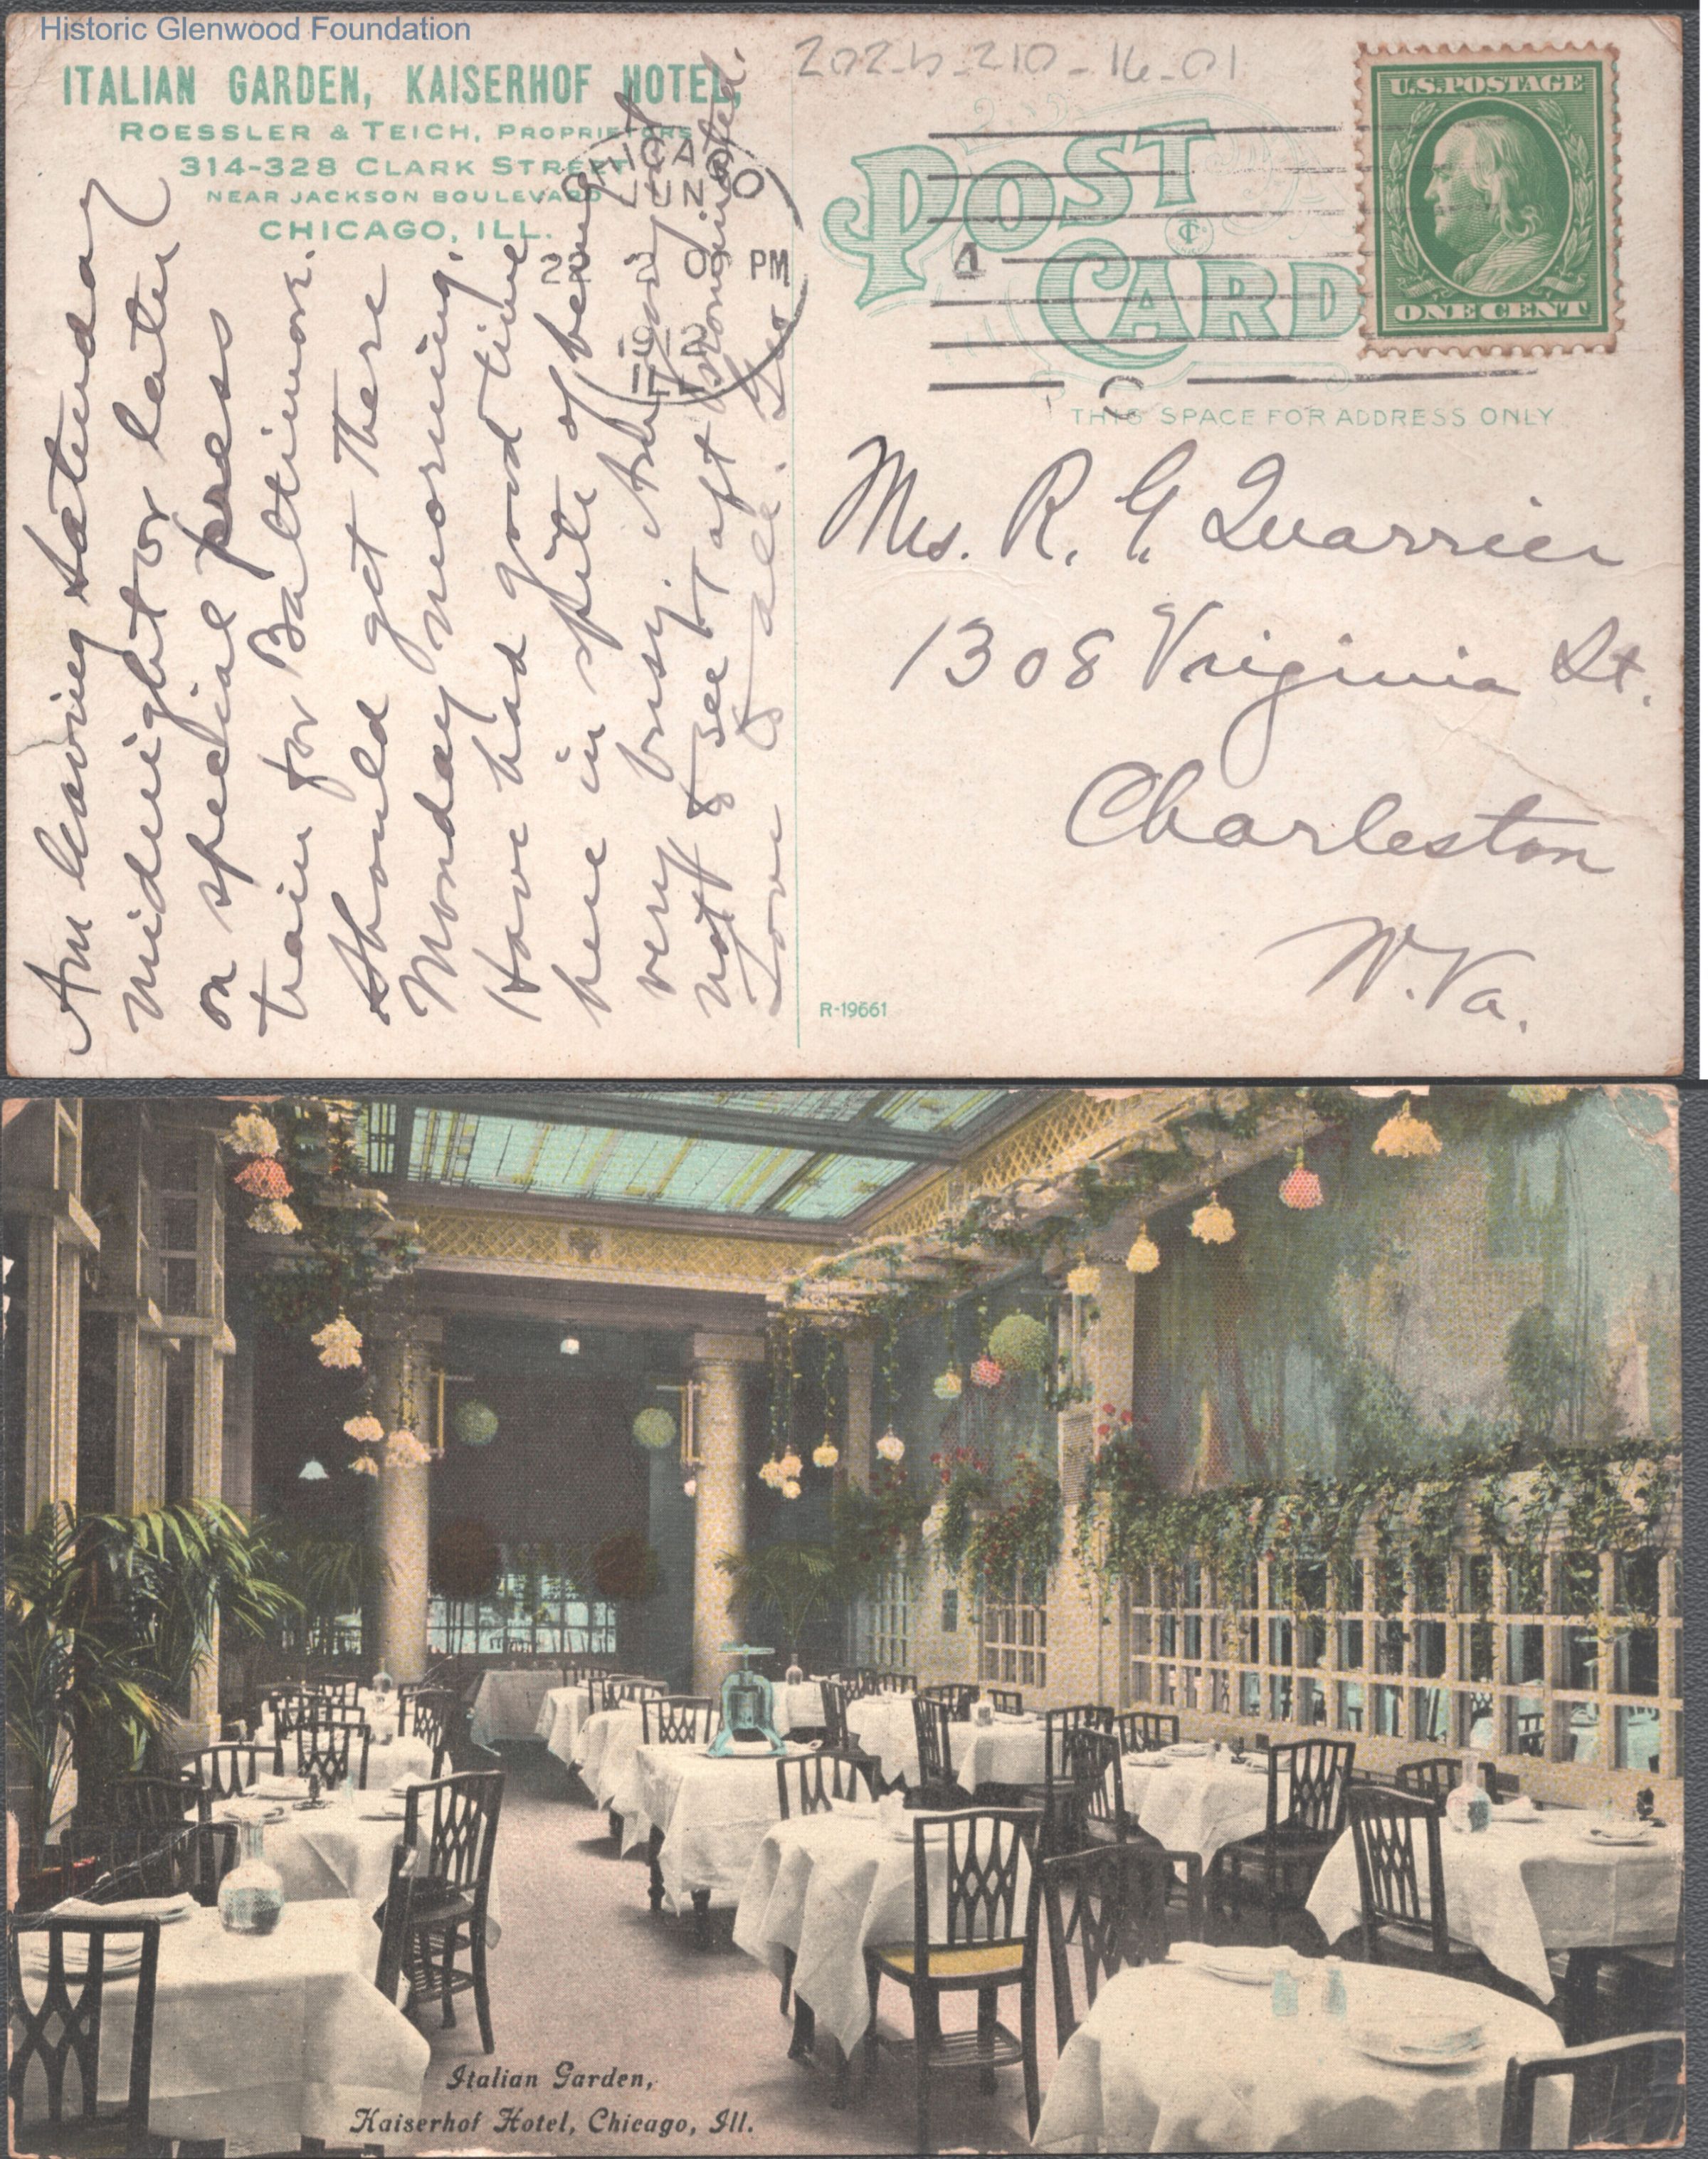 Historic Glenwood Foundation
ITALIAN GARDEN, KAISERHOF HOTEL,
ROESSLER & TEICH, PROPRIETORS
314-328 CLARK STREET
NEAR JACKSON BOULEVARD
CHICAGO, ILL.
CHICAGO
JUN
PM
1912
Am leaving Saturday
midnight or later
on special press
train for Baltimore.
Should get there
Monday morning.
Have had good time
here in spite of being
very busy. Am
not to see Taft nominated.
Love to all. Geo
210-16-01
U.S. POSTAGE
ONE CENT
POST
CARD
THIS SPACE FOR ADDRESS ONLY
Mrs. R. G. Quarrier
1308 Virginia St.
Charleston
W. Va.
R-19661
Italian Garden,
Kaiserhof Hotel, Chicago, Ill.